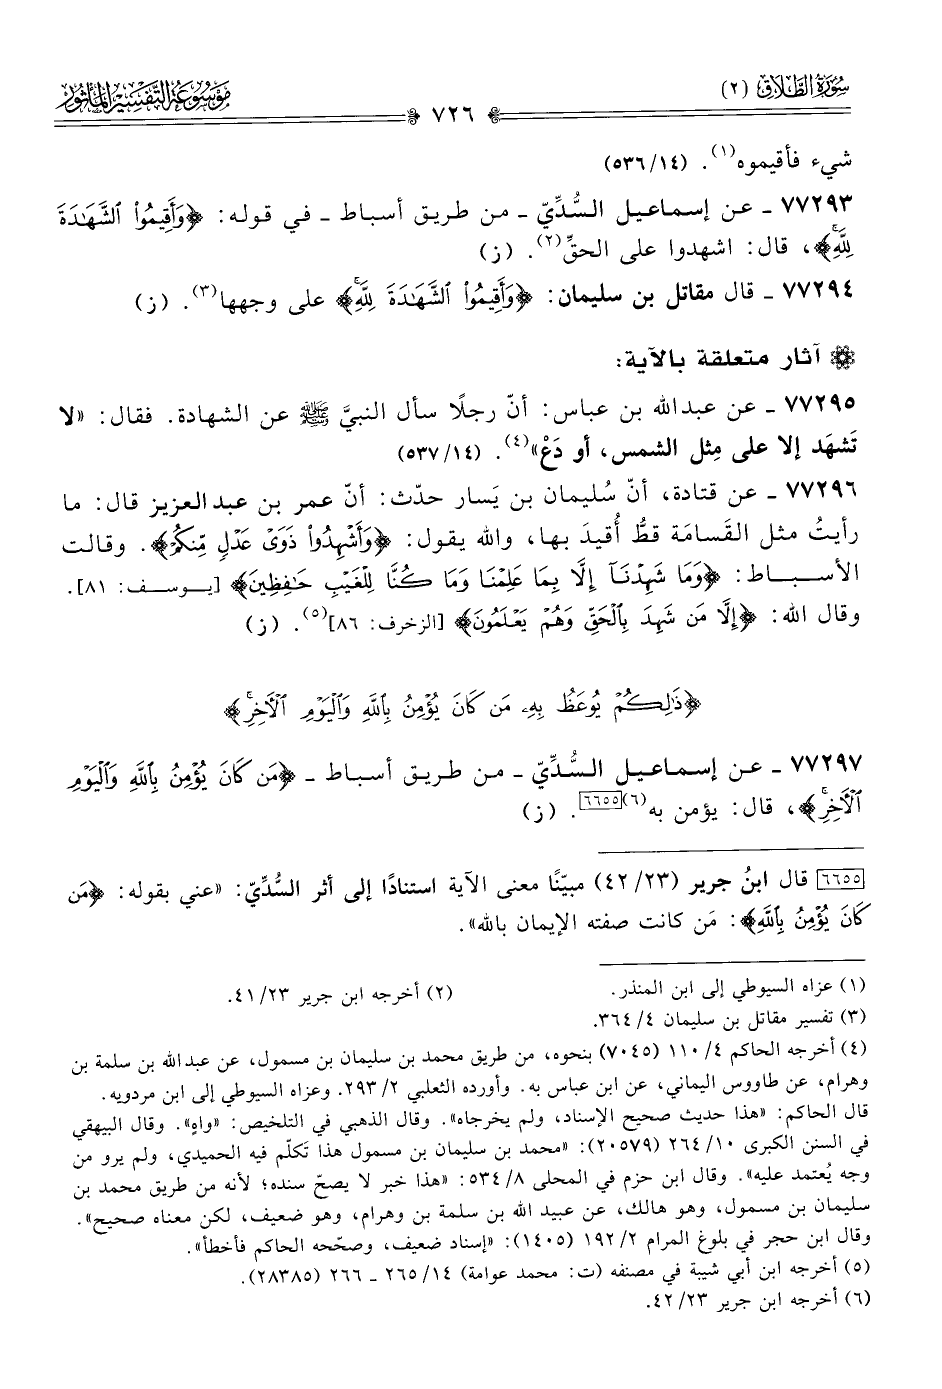 سُورَةُ الطَّلَاقِ (٢)
٧٢٦
مَوْسُوعَةُ التَّفْسِيرِ المَأْثُورِ
شيء فأقيموه(١). (١٤/٥٣٦)
٧٧٢٩٣ ـ عن إسماعيل السُّدِّيّ ـ من طريق أسباط ـ في قوله: ﴿وَأَقِيمُوا۟ ٱلشَّهَـٰدَةَ
لِلَّهِۚ﴾، قال: اشهدوا على الحقِّ(٢). (ز)
٧٧٢٩٤ ـ قال مقاتل بن سليمان: ﴿وَأَقِيمُوا۟ ٱلشَّهَـٰدَةَ لِلَّهِۚ﴾ على وجهها(٣). (ز)
آثار متعلقة بالآية:
٧٧٢٩٥ ـ عن عبدالله بن عباس: أنّ رجلًا سأل النبيَّ ﷺ عن الشهادة. فقال: «لا
تَشهَد إلا على مِثل الشمس، أو دَعْ»(٤). (١٤/٥٣٧)
٧٧٢٩٦ ـ عن قتادة، أنّ سُليمان بن يَسار حدّث: أنّ عمر بن عبدالعزيز قال: ما
رأيتُ مثل القَسامَة قطُّ أُقيدَ بها، والله يقول: ﴿وَأَشْهِدُوا۟ ذَوَىْ عَدْلٍ مِّنكُمْ﴾. وقالت
الأسباط: ﴿وَمَا شَهِدْنَآ إِلَّا بِمَا عَلِمْنَا وَمَا كُنَّا لِلْغَيْبِ حَـٰفِظِينَ﴾ [يوسف: ٨١].
وقال الله: ﴿إِلَّا مَن شَهِدَ بِٱلْحَقِّ وَهُمْ يَعْلَمُونَ﴾ [الزخرف: ٨٦](٥). (ز)
﴿ذَٰلِكُمْ يُوعَظُ بِهِۦ مَن كَانَ يُؤْمِنُ بِٱللَّهِ وَٱلْيَوْمِ ٱلْـَٔاخِرِۚ﴾
٧٧٢٩٧ ـ عن إسماعيل السُّدِّيّ ـ من طريق أسباط ـ ﴿مَن كَانَ يُؤْمِنُ بِٱللَّهِ وَٱلْيَوْمِ
ٱلْـَٔاخِرِۚ﴾، قال: يؤمن به(٦)[٦٦٥٥]. (ز)
[٦٦٥٥] قال ابنُ جرير (٢٣/٤٢) مبيّنًا معنى الآية استنادًا إلى أثر السُّدِّيّ: «عني بقوله: ﴿مَن
كَانَ يُؤْمِنُ بِٱللَّهِ﴾: مَن كانت صفته الإيمان بالله».
(١) عزاه السيوطي إلى ابن المنذر. (٢) أخرجه ابن جرير ٢٣/٤١.
(٣) تفسير مقاتل بن سليمان ٤/٣٦٤.
(٤) أخرجه الحاكم ٤/١١٠ (٧٠٤٥) بنحوه، من طريق محمد بن سليمان بن مسمول، عن عبدالله بن سلمة بن
وهرام، عن طاووس اليماني، عن ابن عباس به. وأورده الثعلبي ٢/٢٩٣. وعزاه السيوطي إلى ابن مردويه.
قال الحاكم: «هذا حديث صحيح الإسناد، ولم يخرجاه». وقال الذهبي في التلخيص: «واهٍ». وقال البيهقي
في السنن الكبرى ١٠/٢٦٤ (٢٠٥٧٩): «محمد بن سليمان بن مسمول هذا تَكلّم فيه الحميدي، ولم يرو من
وجه يُعتمد عليه». وقال ابن حزم في المحلى ٨/٥٣٤: «هذا خبر لا يصحّ سنده؛ لأنه من طريق محمد بن
سليمان بن مسمول، وهو هالك، عن عبيد الله بن سلمة بن وهرام، وهو ضعيف، لكن معناه صحيح».
وقال ابن حجر في بلوغ المرام ٢/١٩٢ (١٤٠٥): «إسناد ضعيف، وصحّحه الحاكم فأخطأ».
(٥) أخرجه ابن أبي شيبة في مصنفه (ت: محمد عوامة) ١٤/٢٦٥ ـ ٢٦٦ (٢٨٣٨٥).
(٦) أخرجه ابن جرير ٢٣/٤٢.